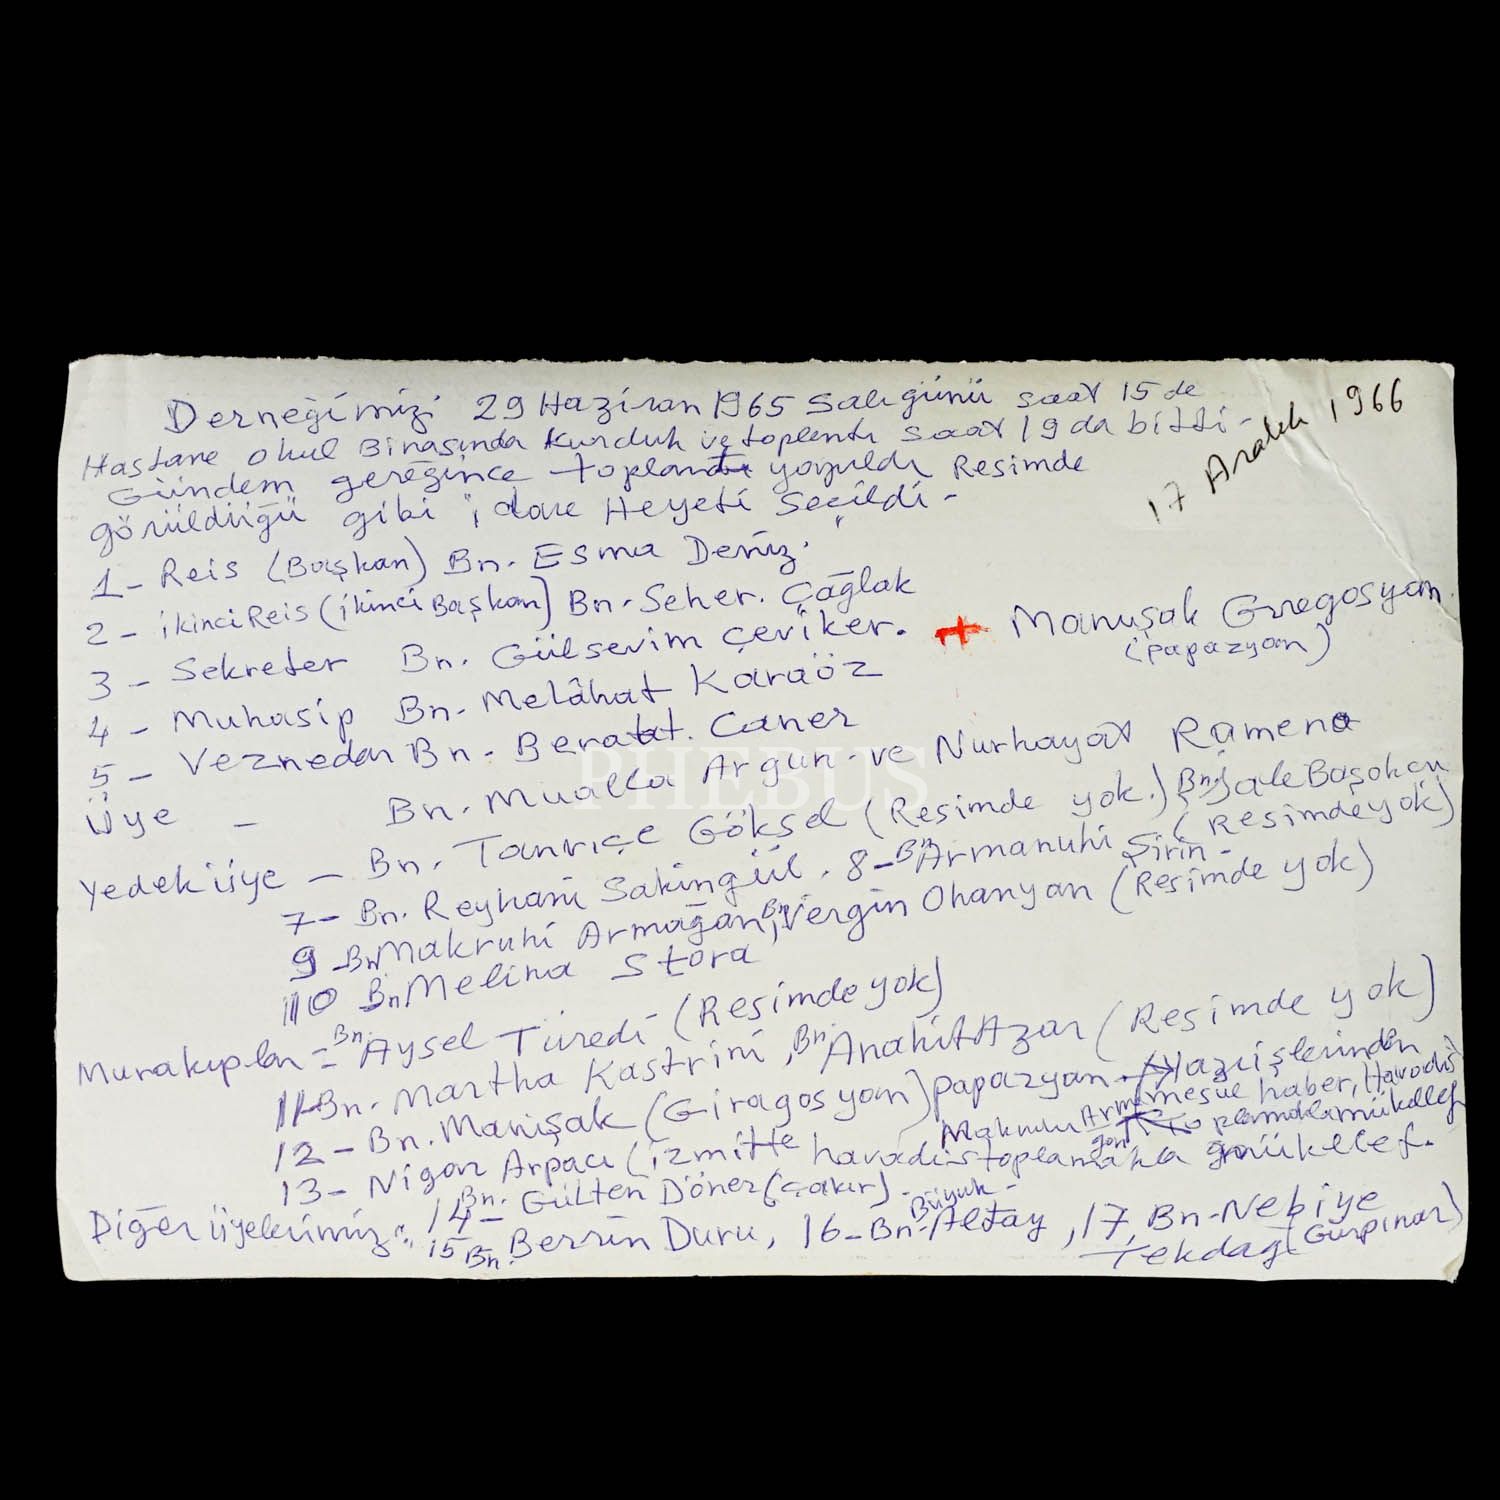 Derneğimizi 29 Haziran 1965 Salı günü saat 15 de
Hastane okul Binasında kurduk ve toplantı saat 19 da bitti -
Gündem gereğince toplantı yapıldı Resimde
görüldüğü gibi idare Heyeti Seçildi -
17 Aralık 1966
1 - Reis (Başkan) Bn. Esma Deniz.
2 - ikinci Reis (ikinci Başkan) Bn. Seher. Çağlak
3 - Sekreter Bn. Gülsevim Çeviker. + Manuşak Gregosyan
(papazyan)
4 - Muhasip Bn. Melâhat Karaöz
5 - Veznedar Bn. Berat. Caner
Üye - Bn. Mualla Argun - ve Nurhayat Ramena
Yedek üye - Bn. Tanrıçe Göksel (Resimde yok.) Bn. Jale Başokcu
(Resimde yok)
7 - Bn. Reyhani Sakingül. 8 - Bn Armanuhi Şirin -
9 - Bn Makruhi Armağan, Bn Vergin Ohanyan (Resimde yok)
10 Bn Melina Stora
Murakıplar = Bn. Aysel Türedi (Resimde yok)
11 - Bn. Martha Kastrini, Bn. Anahit Azar (Resimde yok)
12 - Bn. Manişak (Giragosyan) papazyan. Yazı işlerinden
mesul haber, Havadis
Makruhi Armağan toplamakla mükellef
13 - Nigar Arpacı (izmitte havadis toplamakla mükellef.
Diğer üyelerimiz: 14 - Bn. Gülten Döner (Çakır) -
15 Bn. Berrin Duru, 16 - Bn. Büyük - Altay, 17, Bn. Nebiye
Tekdağ (Gürpınar)
PHEBUS